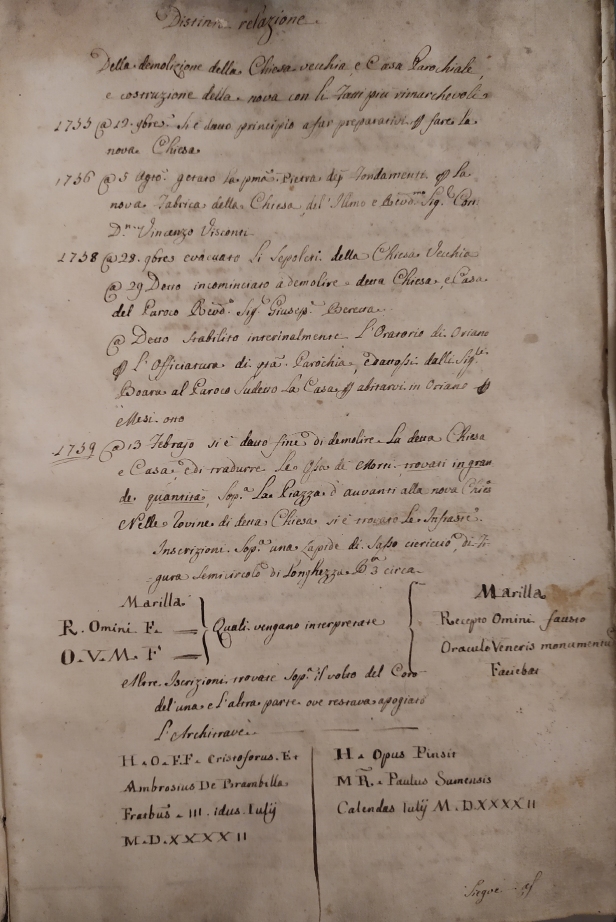 Distinta relazione
Della demolizione della Chiesa vecchia e Casa Parochiale,
e costruzione della nova con li fatti piu rimarchevoli
1755 @ 12. gbre. si é dato principio a far preparativi p fare la
nova Chiesa
1756 @ 5 Agto. getato la pma. Pietra de fondamenti p la
nova Fabrica della Chiesa, del Illmo e Revdmo Sigr. Con
Dn. Vincenzo Visconti
1758 @ 28. gbre evacuato li Sepolcri della Chiesa Vecchia
@ 29 Detto incominciato a demolire detta Chiesa, e Casa
del Paroco Revdo. Sigr. Giusepe. Beretta.
@ Detto stabilito interinalmente L'Oratorio di Oriano
p L'Officiatura di qta. Parochia, e datosi dalli Sigri.
Boara al Paroco sudetto La Casa p abitarvi in Oriano p
Mesi ono
1759 @ 13 Febrajo si é dato fine di demolire La detta Chiesa
e Casa, e di tradurre le Ossa de Morti trovati in gran
de quantità, Sopa. La Piazza d'avvanti alla nova Chiesa
Nelle rovine di detta Chiesa si é trovato Le Infrastte.
Inscrizioni. Sopa. una Lapide di Sasso di Fi-
gura semicircolo di Longhezza Ba. 3 circa
Marilla
R. Omini F.
O. V. M. F
Quali vengano interpretate
Marilla
Recepto Omini fausto
Oraculo Veneris monumentu
Faciebat
Altre Iscrizioni trovate Sopa. il volto del Coro
del'una e L'altra parte ove restava apogiato
L'Architrave
H. O. F. F. Cristoforus. Et
Ambrosius De Brambilla
Fratbus. III. idus Iulij
M. D. XXXX II
H. Opus Pinsit
M R. Paulus Sumensis
Calendas Iulij M. D. XXXX II
Siegue